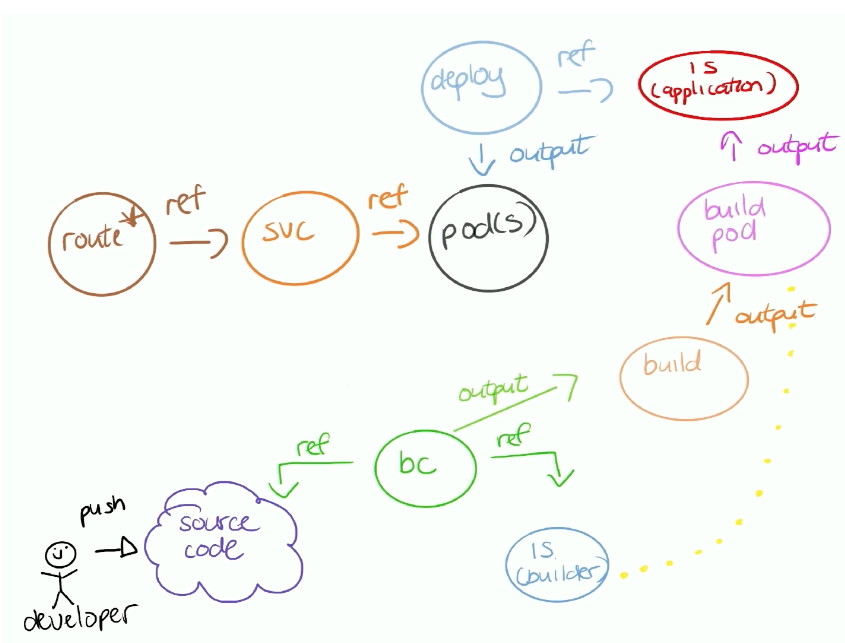 deploy
ref
IS
(application)
output
output
route
ref
svc
ref
pod(s)
build
pod
output
build
output
ref
bc
ref
push
source
code
IS
(builder)
developer